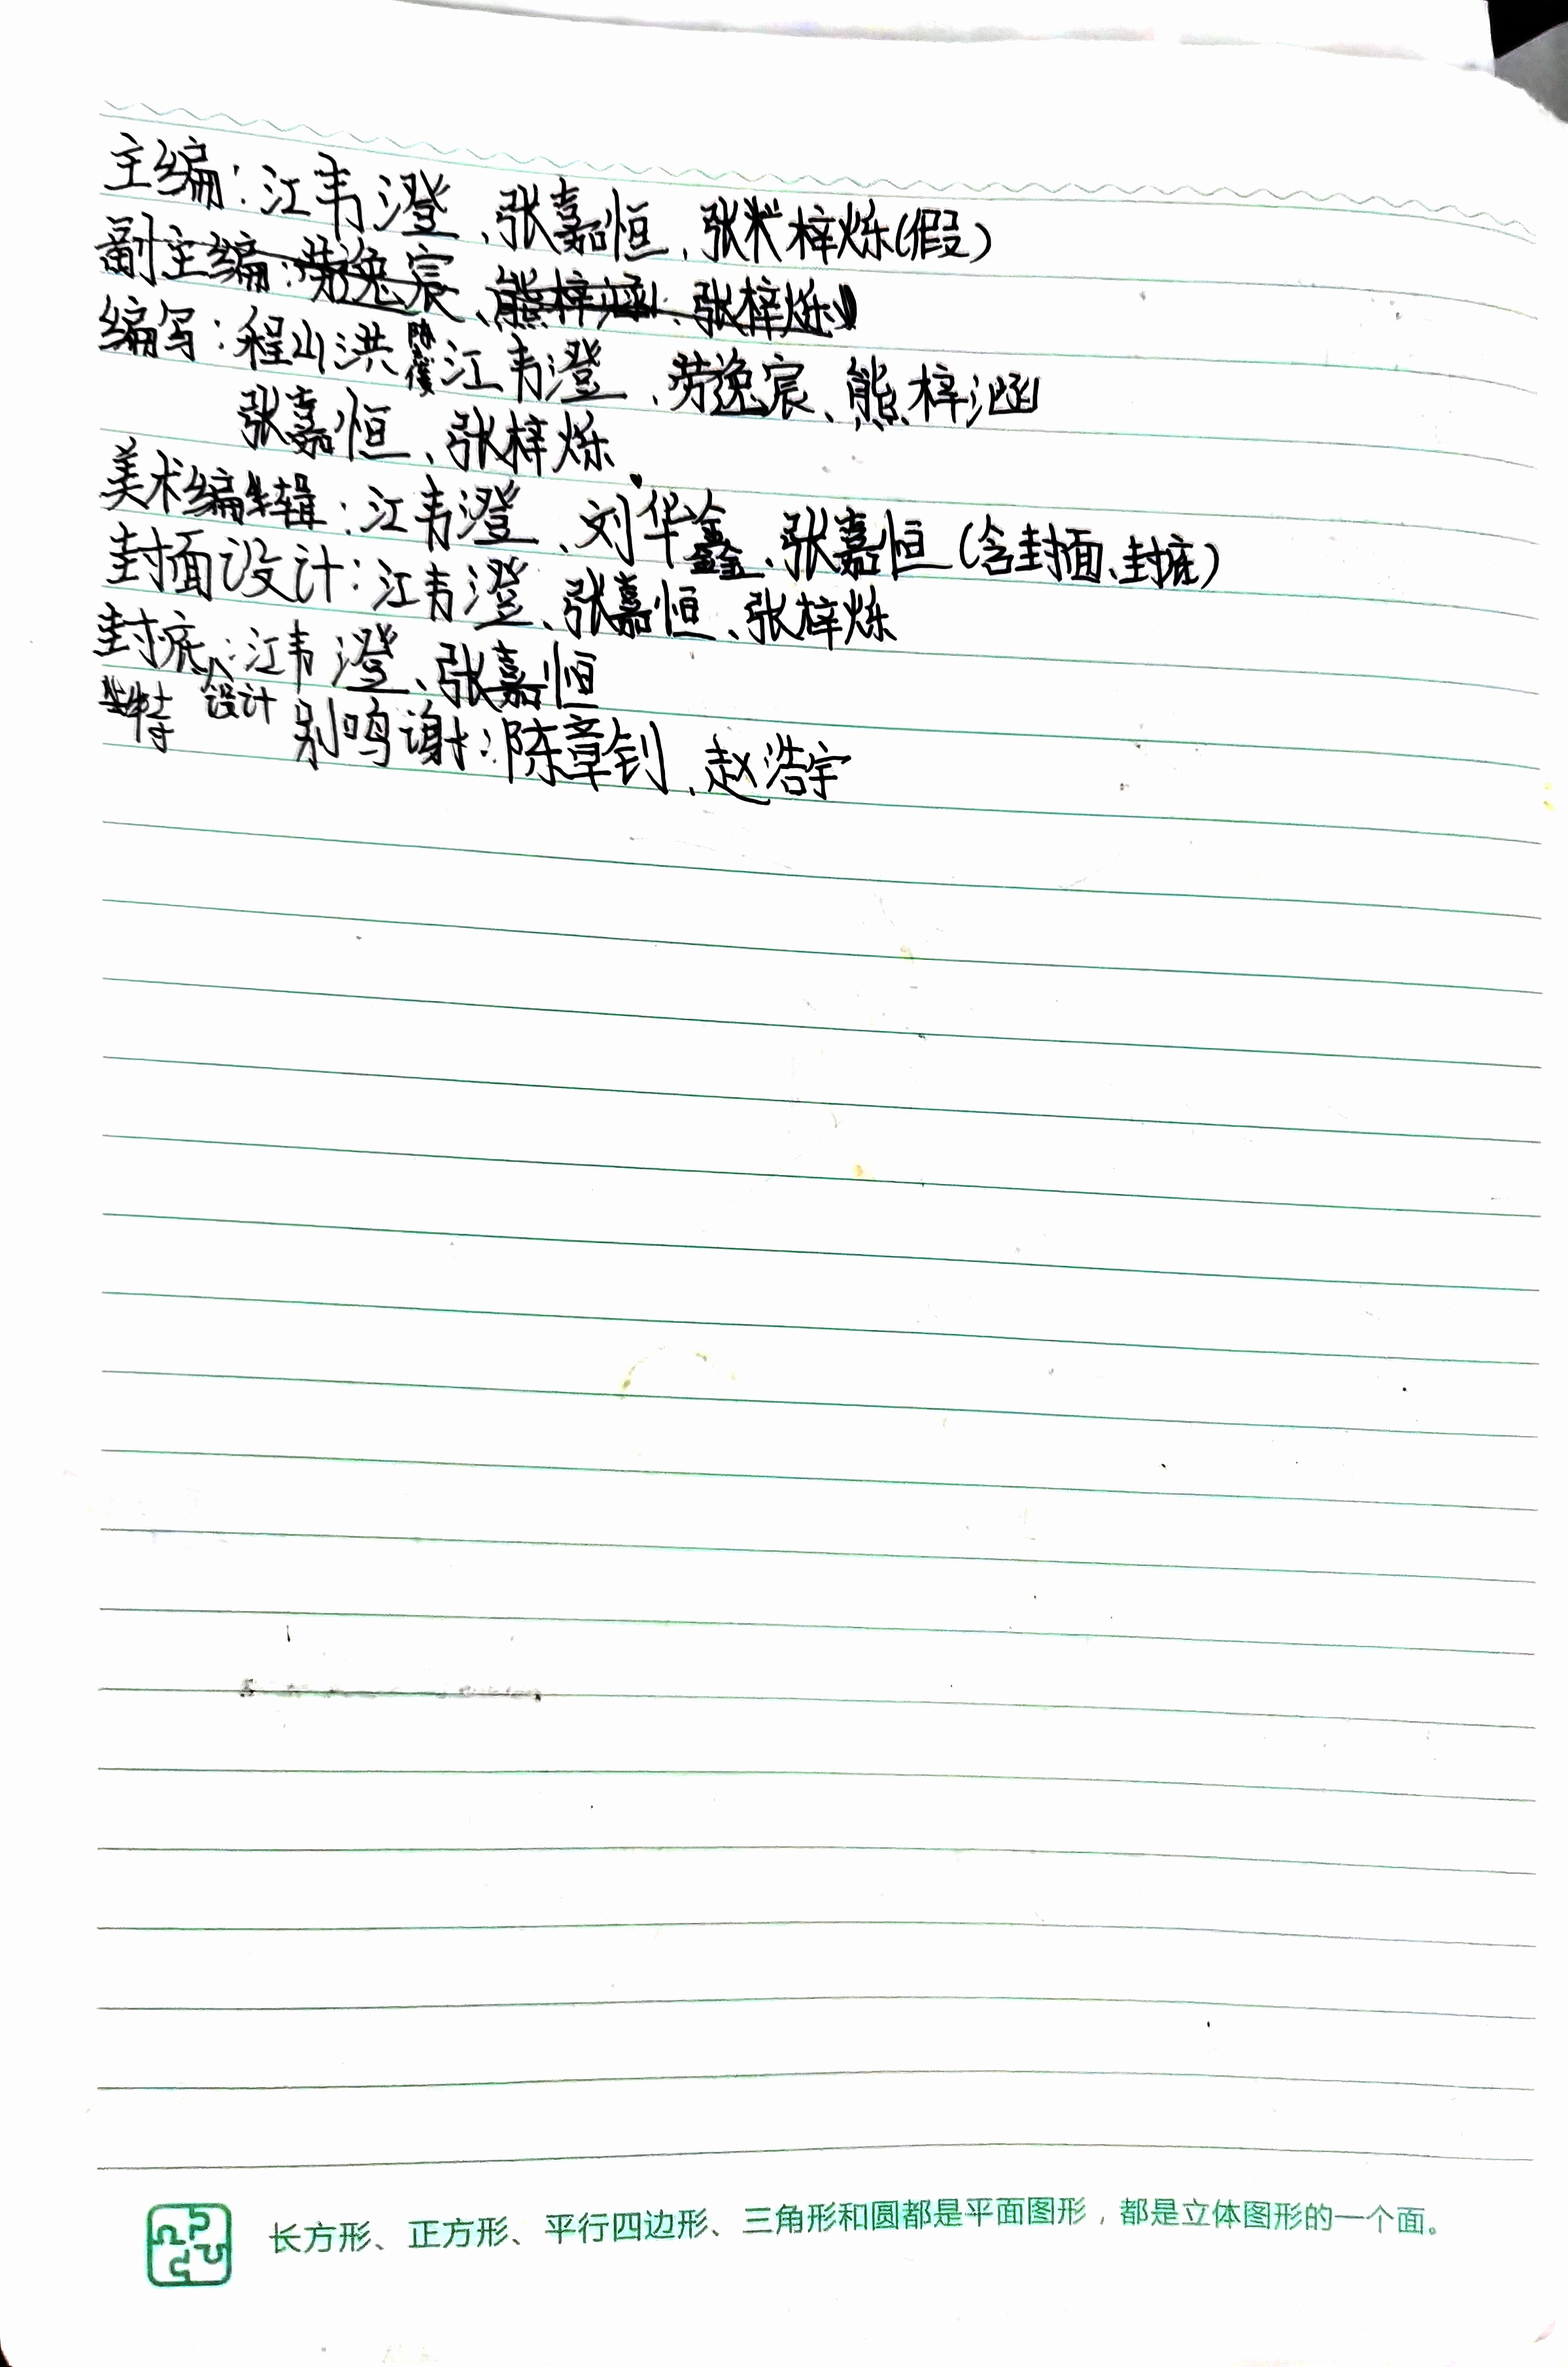 主编：江韦澄、张嘉恒、张梓烁(假)
副主编：劳逸宸、熊梓涵、张梓烁
编写：程山洪 江韦澄、劳逸宸、熊梓涵
张嘉恒、张梓烁
美术编辑：江韦澄、刘华鑫、张嘉恒(含封面、封底)
封面设计：江韦澄、张嘉恒、张梓烁
封底设计：江韦澄、张嘉恒
特别鸣谢：陈章钊、赵浩宇
长方形、正方形、平行四边形、三角形和圆都是平面图形，都是立体图形的一个面。